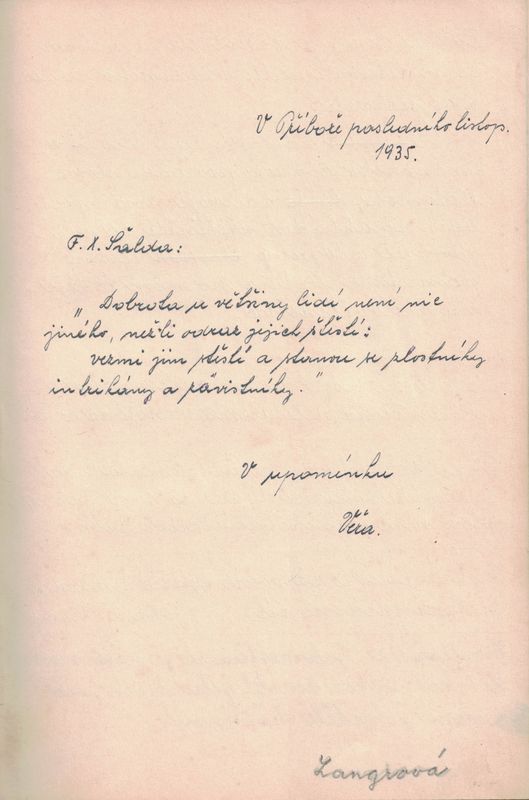 V Příboře posledního listop.
1935.
F. X. Šalda:
„Dobrota u většiny lidí není nic
jiného, nežli odraz jejich štěstí:
vezmi jim štěstí a stanou se zlostníky
intrikány a závistníky."
V upomínku
Věra.
Langrová